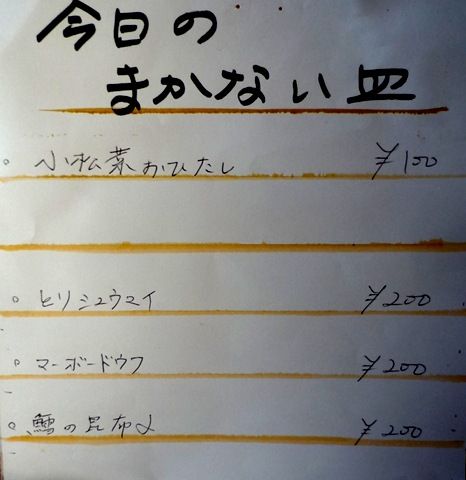 今日の
まかない皿
小松菜おひたし ¥100
とりシュウマイ ¥200
マーボードウフ ¥200
鱈の昆布〆 ¥200